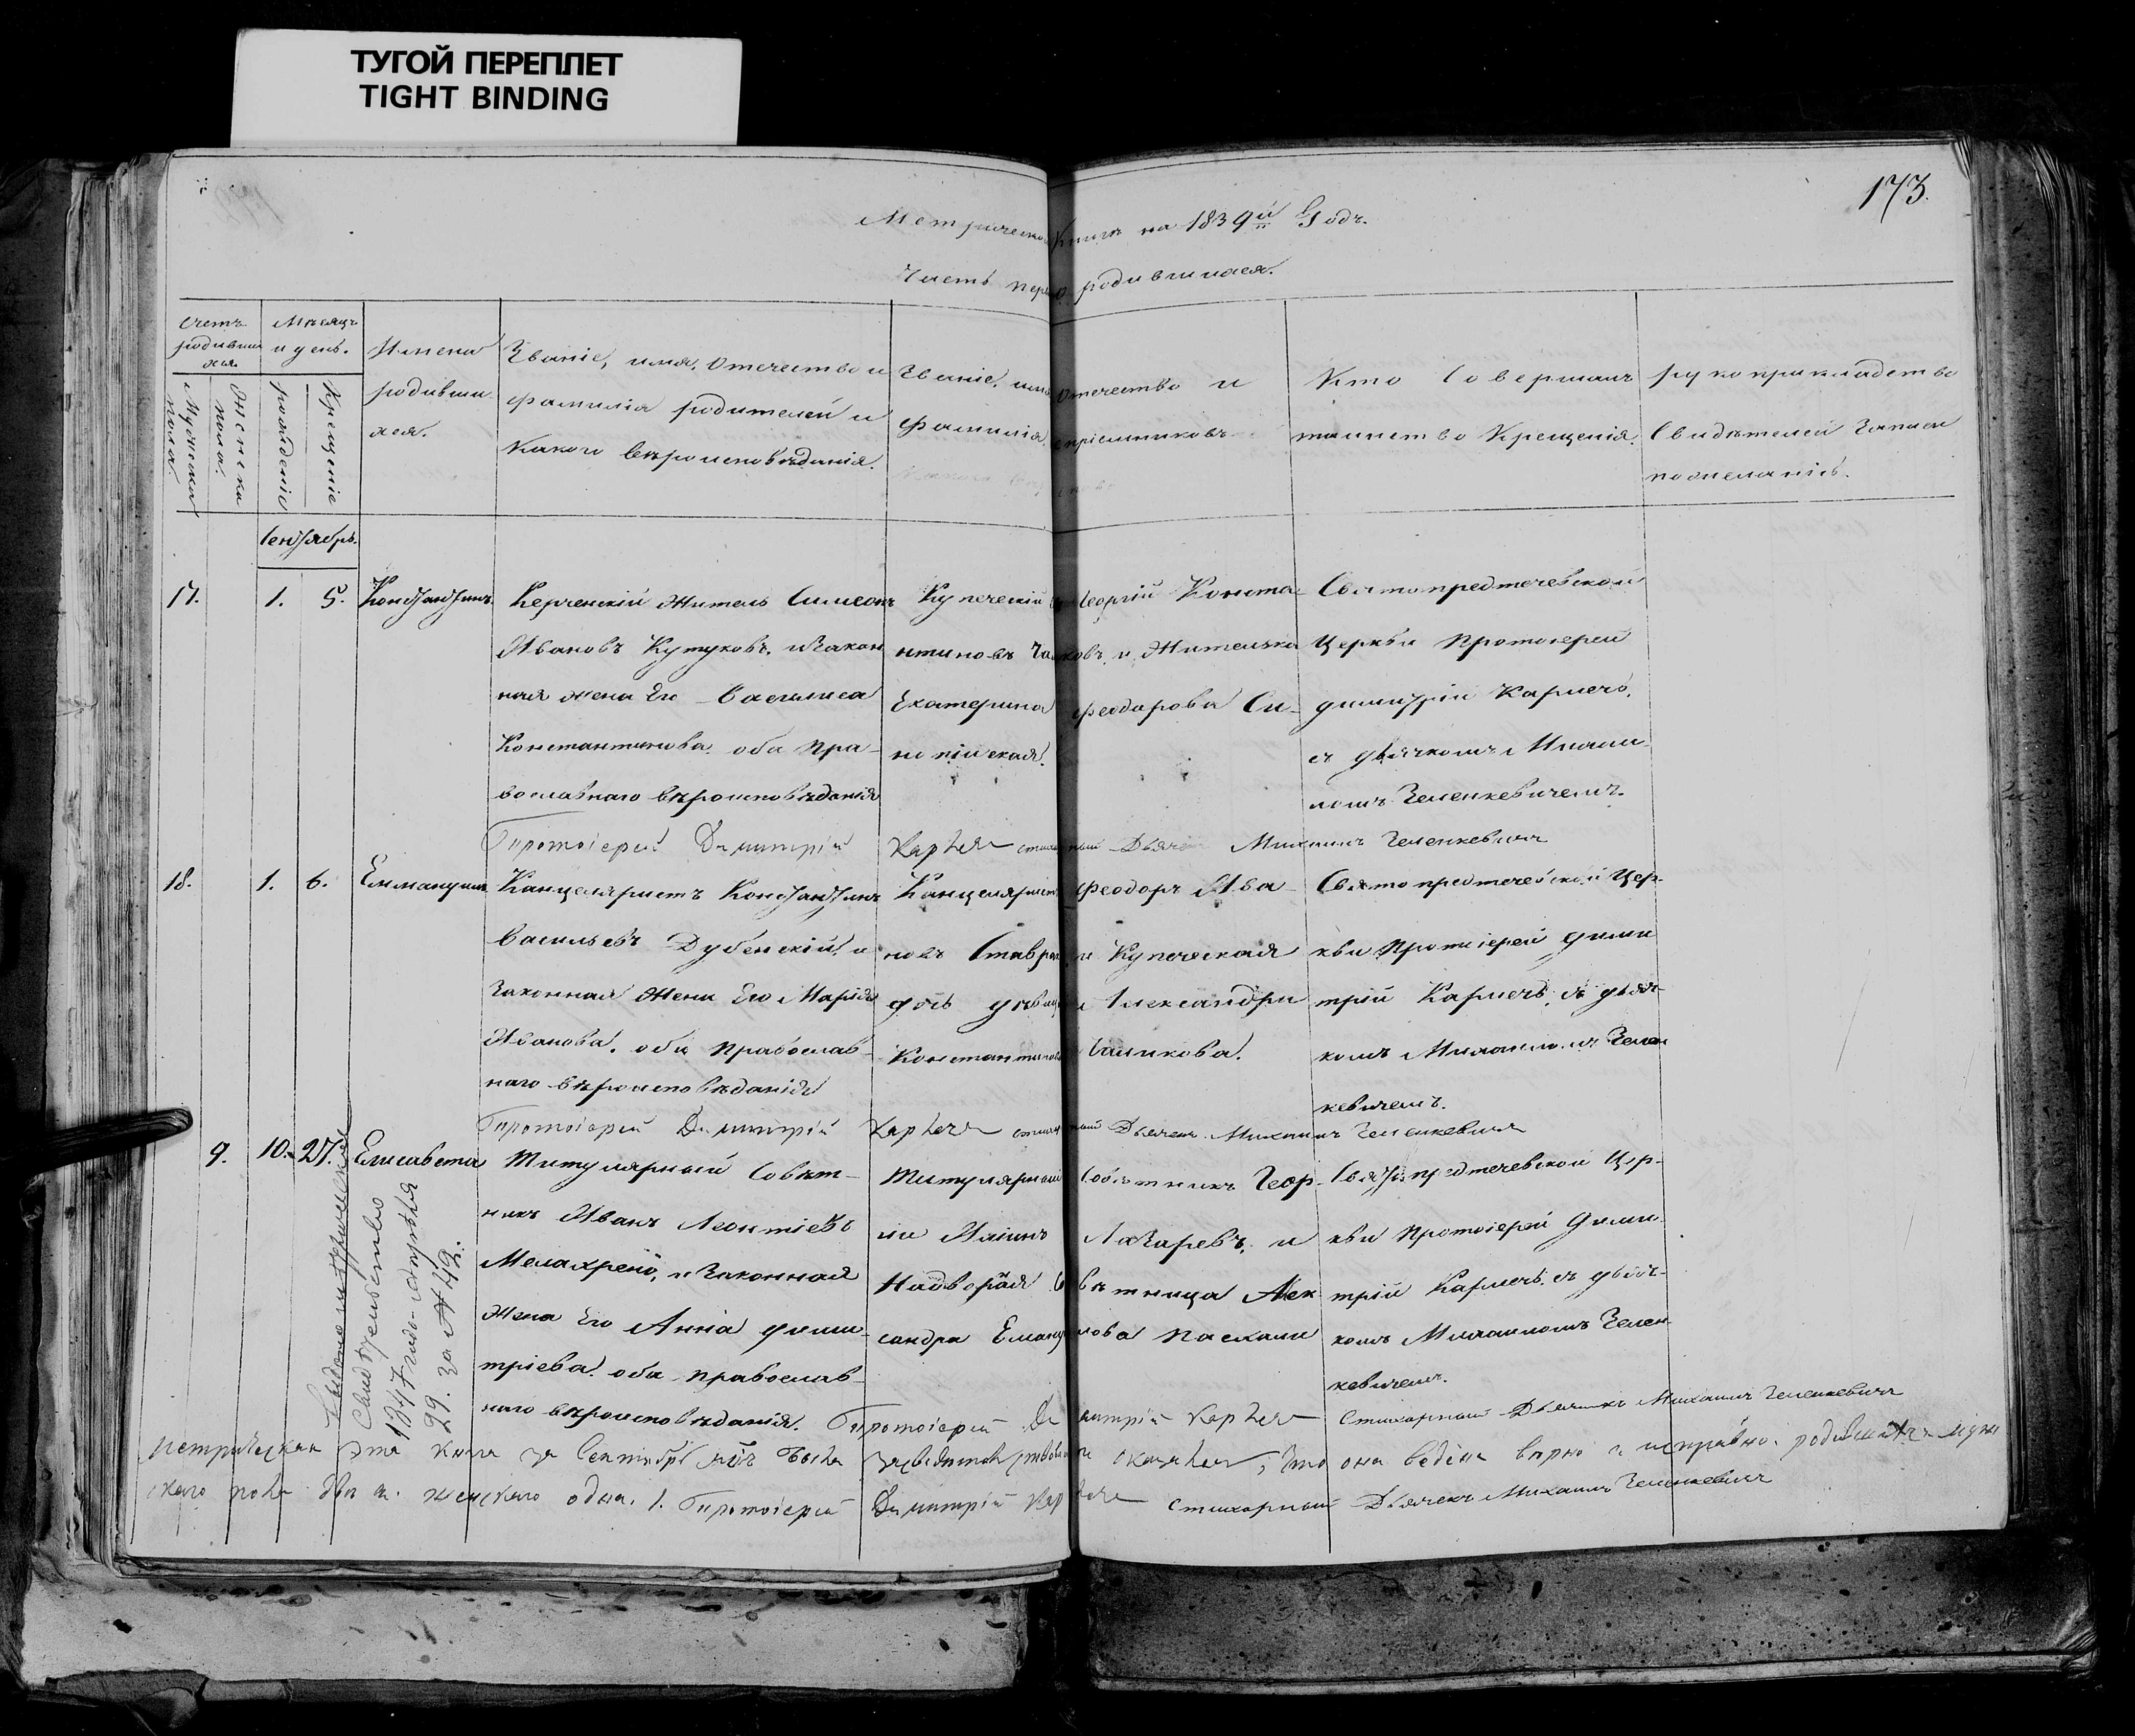 ТУГОЙ ПЕРЕПЛЕТ
TIGHT BINDING
173.
Метрической Книги на 1839й Годъ.
Часть пер о родившихся.
Счетъ родивши хся
Мужеска пола.
Женска пола.
Мѣсяцъ и день.
рожденіе
Крещеніе
Имена
родивши-
хся.
Званіе, имя, Отечество и
фамилія родителей и
Какого вѣроисповѣданія.
Званіе, имя Отечество и
фамилія воспріемниковъ
Кто Совершалъ
таинство Крещенія.
рукоприкладство
Свидѣтелей Записи
пожеланію.
Сентябрь.
17.
1.
5.
Константинъ
Керченскій Житель Симеонъ
Ивановъ Кутуковъ, и Закон
ная жена Его Василиса
Константинова оба Пра-
вославнаго вѣроисповѣданія
Купеческій Георгій Конста-
нтиновъ и Жителька
Екатерина Феодорова Си-
нопійская.
Святопредтечевской
Церкви Протоіерей
димитрій Карпечь,
съ дьячкомъ Михаи-
ломъ Зеленкевичемъ.
Протоіерей Димитрій Стихарный Дьячекъ Михаилъ Зеленкевичъ
18.
1.
6.
Еммануилъ
Канцеляристъ Константинъ
Васильевъ Дубенскій, и
Законная Жена Его Марія
Иванова, оба Православ-
наго вѣроисповѣданія
Канцеляристъ Феодоръ Ива-
новъ и Купеческая
дочь дѣвица Александра
Константинова
Святопредтечевской Цер-
кви Протоіерей дими
трій Карпечь, съ дьяч-
комъ Михаиломъ Зелен
кевичемъ.
Протоіерей Димитрій Стихарный Дьячекъ Михаилъ Зеленкевичъ
9.
10.
27.
Елисавета
Титулярный Совѣт-
никъ Иванъ Леонтіевъ
Мелахрено, и Законная
Жена Его Анна дими-
тріева, оба православ-
наго вѣроисповѣданія.
Титулярный Совѣтникъ Геор-
гій Лазаревъ, и
Надворная Совѣтница Алек
сандра Емануилова Паскали
Святопредтечевской Цер-
кви Протоіерей дими-
трій Карпечь, съ дьяч-
комъ Михаиломъ Зелен-
кевичемъ.
Свидѣтельство
1847 года
29. за № 49.
Протоіерей Димитрій Стихарный Дьячекъ Михаилъ Зеленкевичъ
метрическая эта книга за Сентябрь м-цъ была и оказалось, что она ведена вѣрно и исправно. родившихся муже
скаго пола два женскаго одна. 1. Протоіерей Димитрій Стихарный Дьячекъ Михаилъ Зеленкевичъ